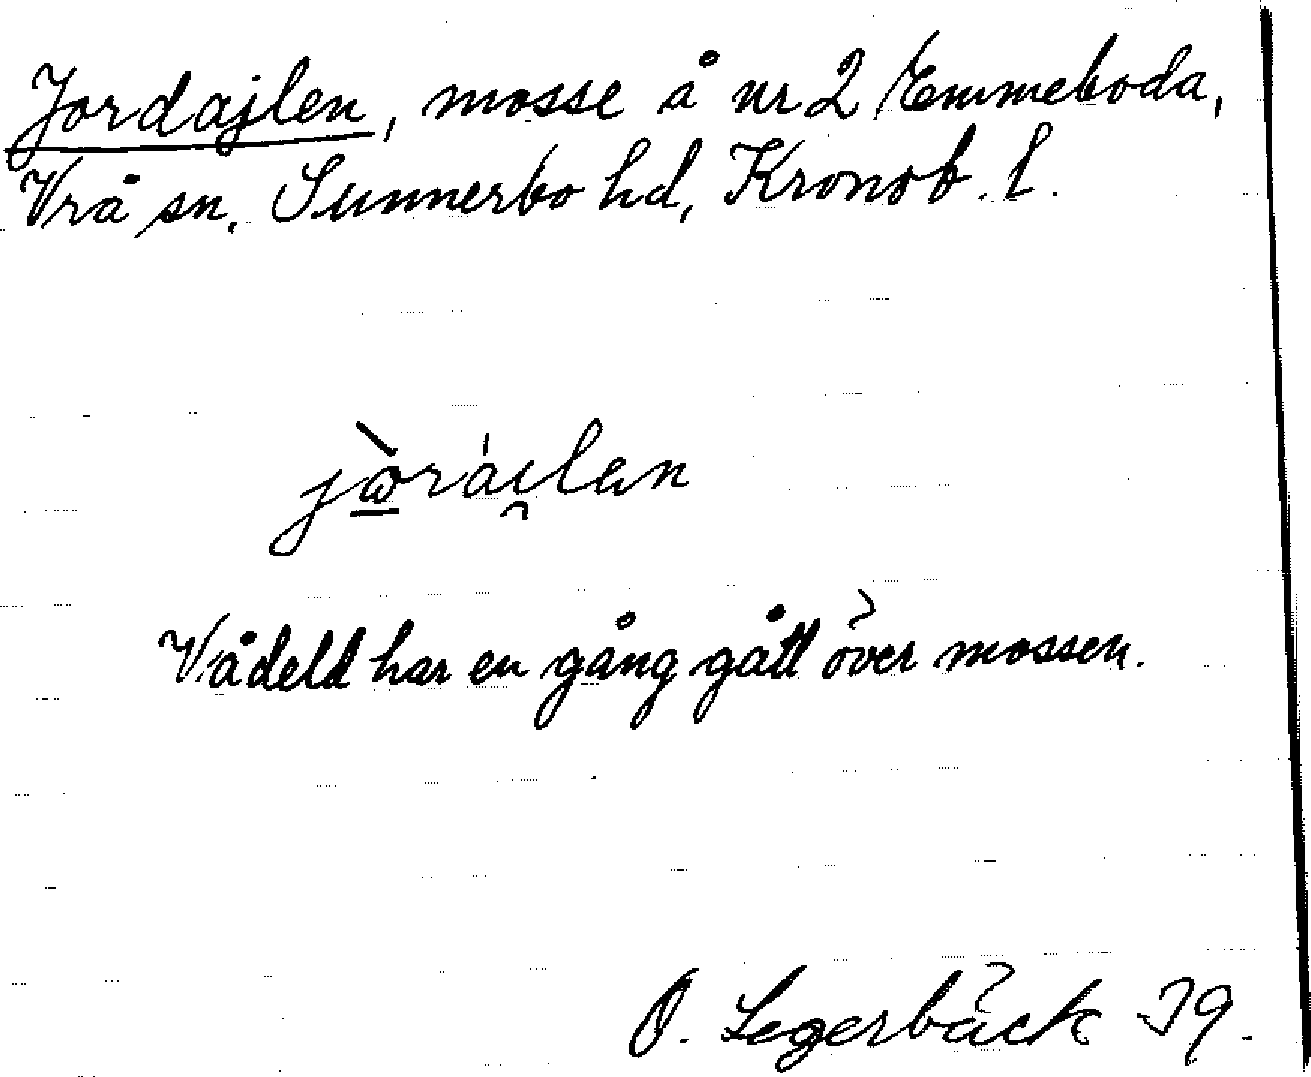 Jordajlen, mosse å nr 2 Emmeboda,
Vrå sn, Sunnerbo hd, Kronob. l.
Vådeld har en gång gått över mossen.
O. Segerbäck 39.